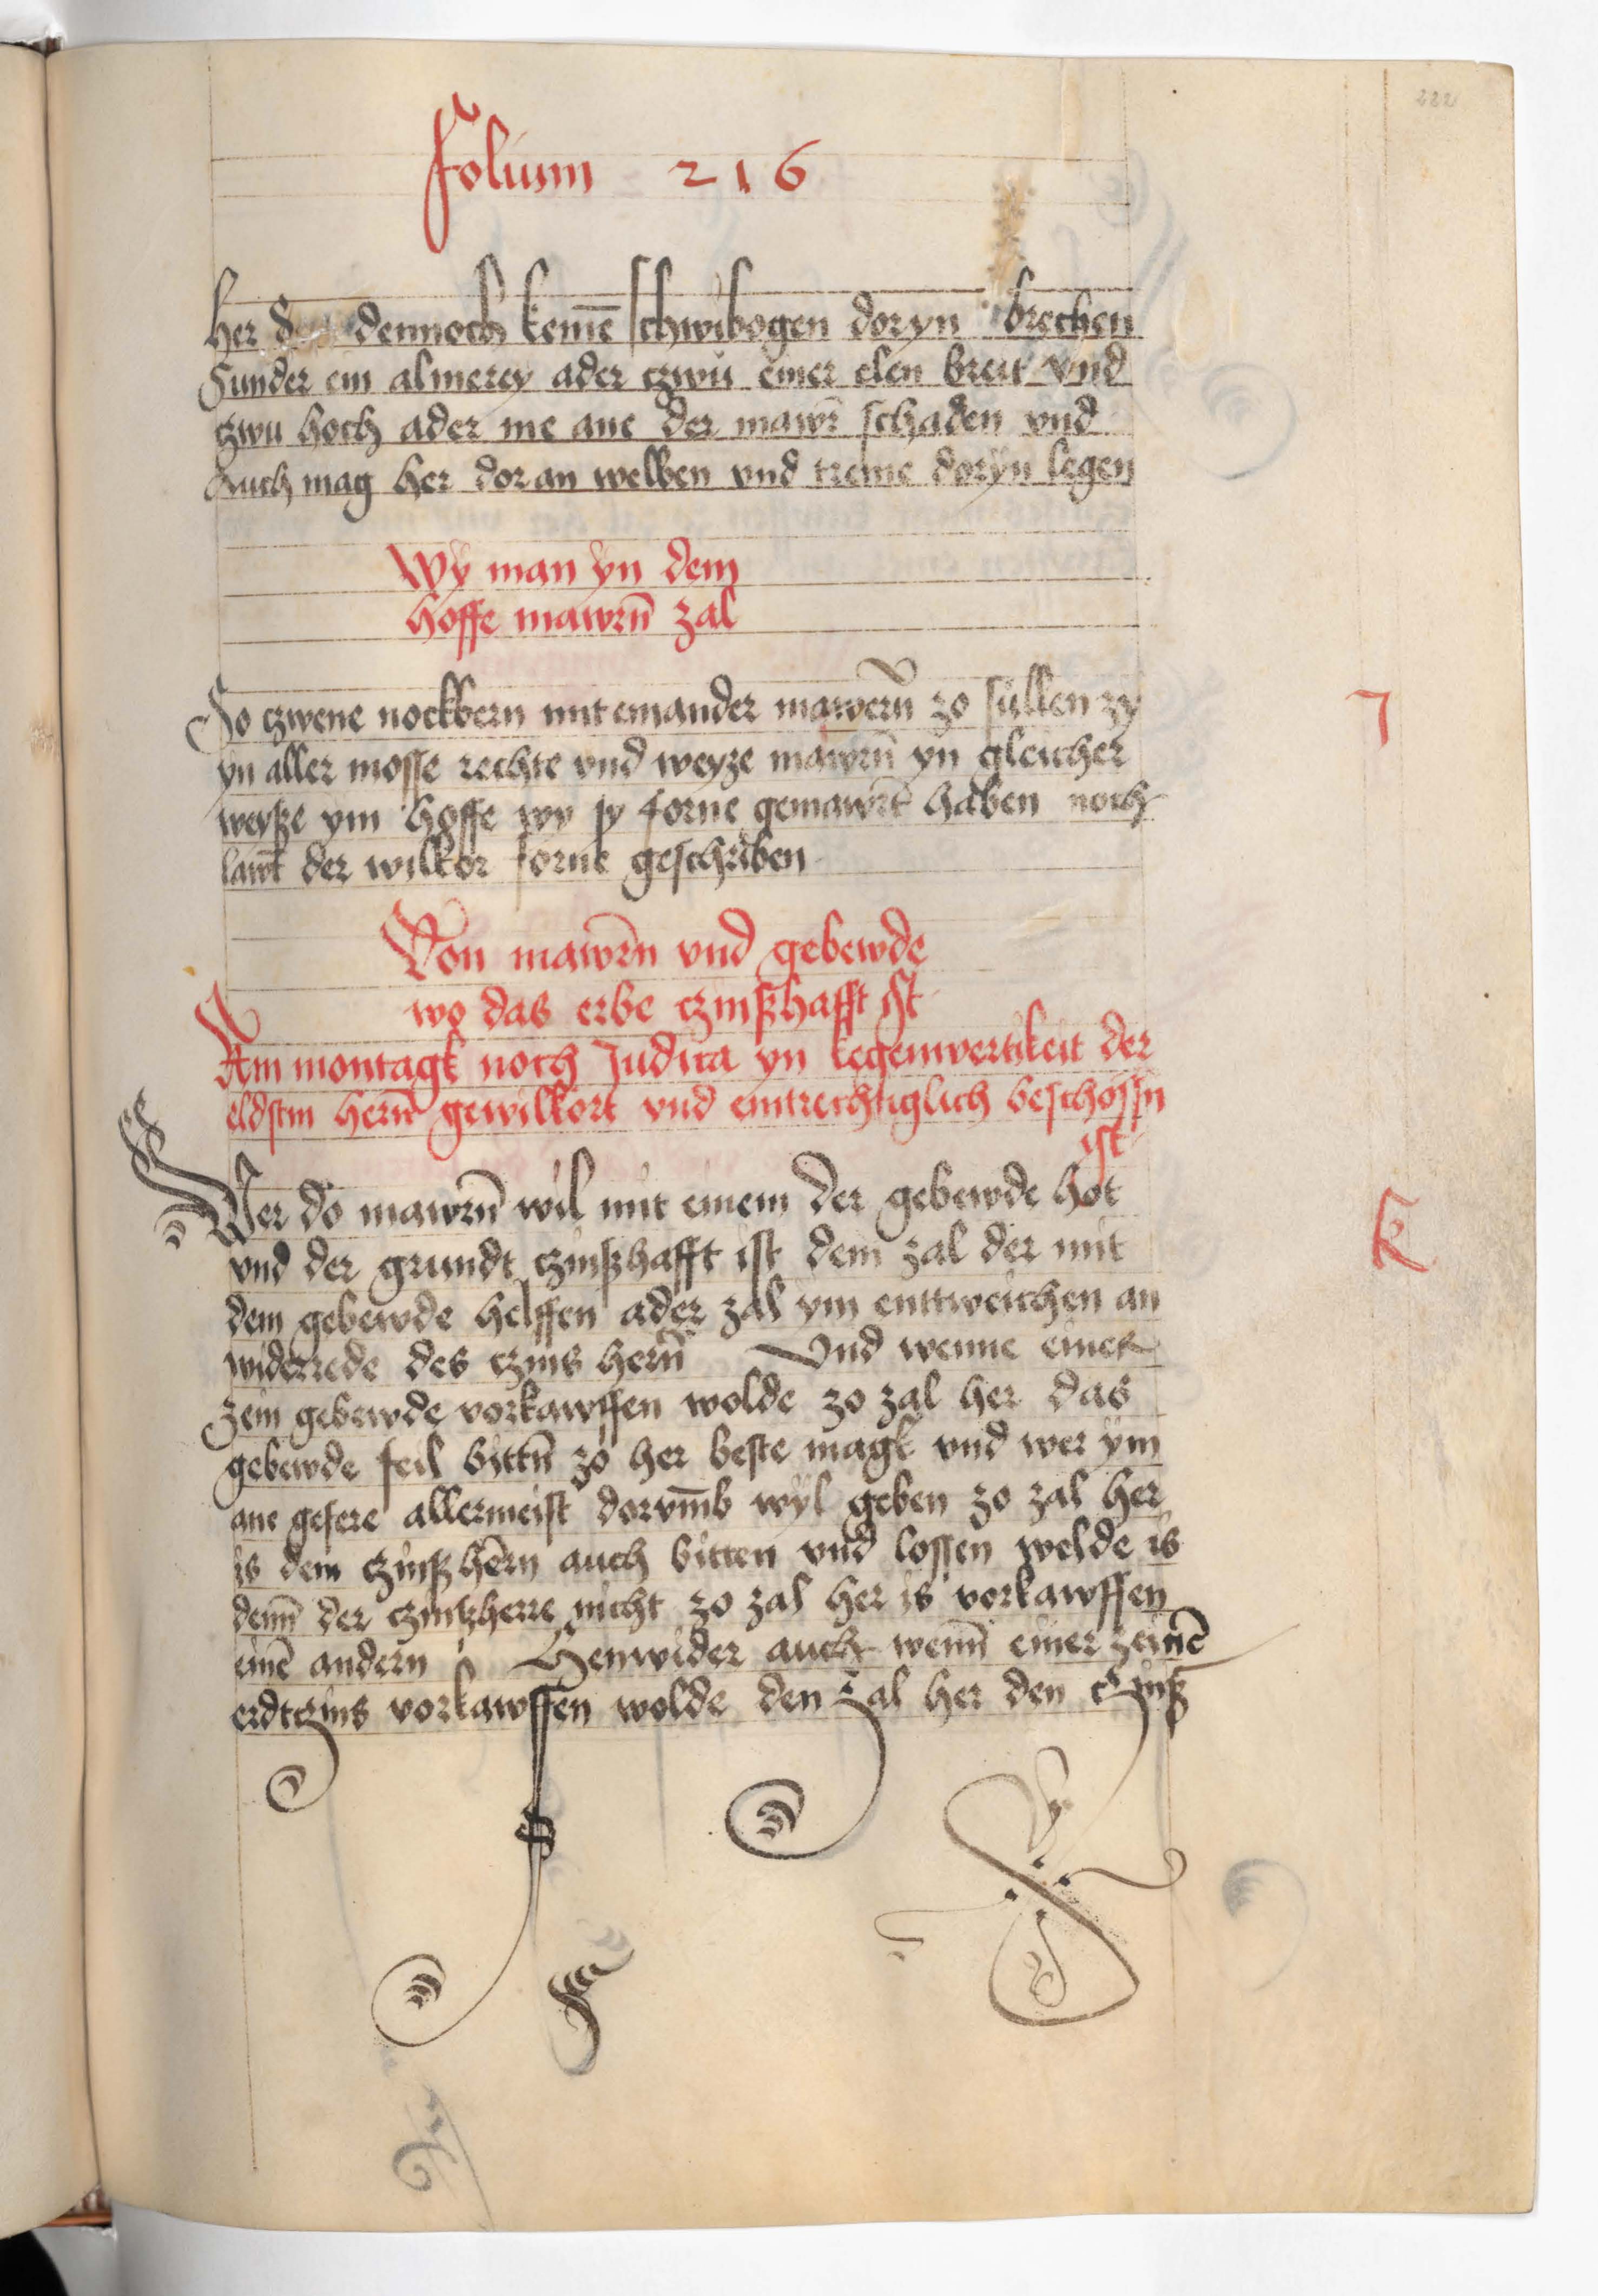 222
Folium 216
her dennoch keinē schwibogen doryn brechen
Sunder ein almerey ader czwu einer elen breit vnd
czwu hoch ader me ane der mawr schaden vnd
Auch mag her doran welben vnd treme doryn legen
Wÿ man ÿn dem
hoffe mawrn̄ zal
So czwene nockbern mit einander mawern̄ zo sullen zy
yn aller mosse rechte vnd weyze mawrn̄ yn gleicher
weyße ym hoffe wy sy forne gemawrt haben noch
lawt der wilkor forne geschriben
Von mawrn̄ vnd gebewde
wo das erbe czinßhafft ist
Am montagk noch Judica yn kegenwertikeit der
eldstin hern̄ gewilkort vnd eintrechtiglich beschossn
ist
Wer do mawrn̄ wil mit einem der gebewde hot
vnd der grundt czinßhafft ist dem zal der mit
dem gebewde helffen ader zal ym enttweichen an
widerrede des czins hern̄ Vnd wenne einer
zein gebewde vorkawffen wolde zo zal her das
gebewde feil bittn̄ zo her beste magk vnd wer ÿm
ane gefere allermeist dorvm̄b wÿl geben zo zal her
is dem czinßhern̄ auch bitten vnd lossen welde is
denn̄ der czinßherre nicht zo zal her is vorkawffen
einē andern Henwider auch wenn̄ einer zeinē
erdtczins vorkawffen wolde den zal her den czinß
J
K